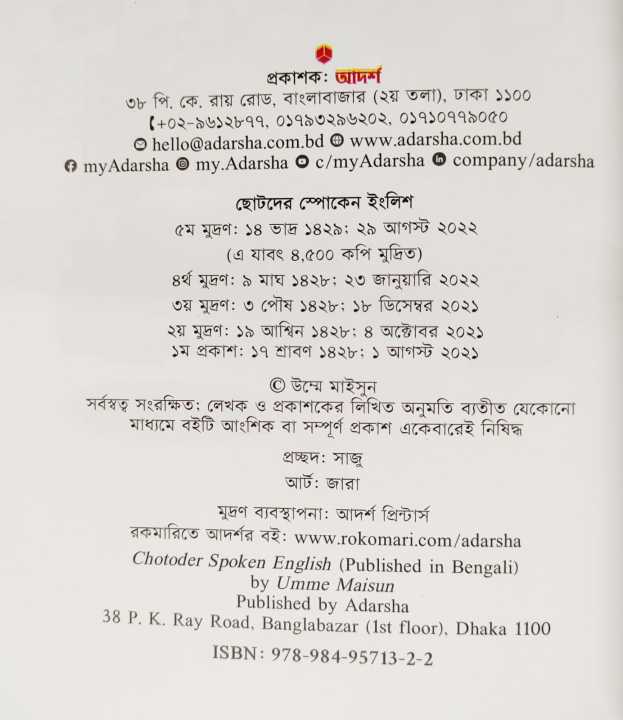 প্রকাশক: আদর্শ
৩৮ পি. কে. রায় রোড, বাংলাবাজার (২য় তলা), ঢাকা ১১০০
(+০২-৯৬১২৮৭৭, ০১৭৯৩২৯৬২০২, ০১৭১০৭৭৯০৫০
hello@adarsha.com.bd www.adarsha.com.bd
myAdarsha my.Adarsha c/myAdarsha company/adarsha
ছোটদের স্পোকেন ইংলিশ
৫ম মুদ্রণ: ১৪ ভাদ্র ১৪২৯; ২৯ আগস্ট ২০২২
(এ যাবৎ ৪,৫০০ কপি মুদ্রিত)
৪র্থ মুদ্রণ: ৯ মাঘ ১৪২৮; ২৩ জানুয়ারি ২০২২
৩য় মুদ্রণ: ৩ পৌষ ১৪২৮; ১৮ ডিসেম্বর ২০২১
২য় মুদ্রণ: ১৯ আশ্বিন ১৪২৮; ৪ অক্টোবর ২০২১
১ম প্রকাশ: ১৭ শ্রাবণ ১৪২৮; ১ আগস্ট ২০২১
© উম্মে মাইসুন
সর্বস্বত্ব সংরক্ষিত; লেখক ও প্রকাশকের লিখিত অনুমতি ব্যতীত যেকোনো
মাধ্যমে বইটি আংশিক বা সম্পূর্ণ প্রকাশ একেবারেই নিষিদ্ধ
প্রচ্ছদ: সাজু
আর্ট: জারা
মুদ্রণ ব্যবস্থাপনা: আদর্শ প্রিন্টার্স
রকমারিতে আদর্শর বই: www.rokomari.com/adarsha
Chotoder Spoken English (Published in Bengali)
by Umme Maisun
Published by Adarsha
38 P. K. Ray Road, Banglabazar (1st floor), Dhaka 1100
ISBN: 978-984-95713-2-2